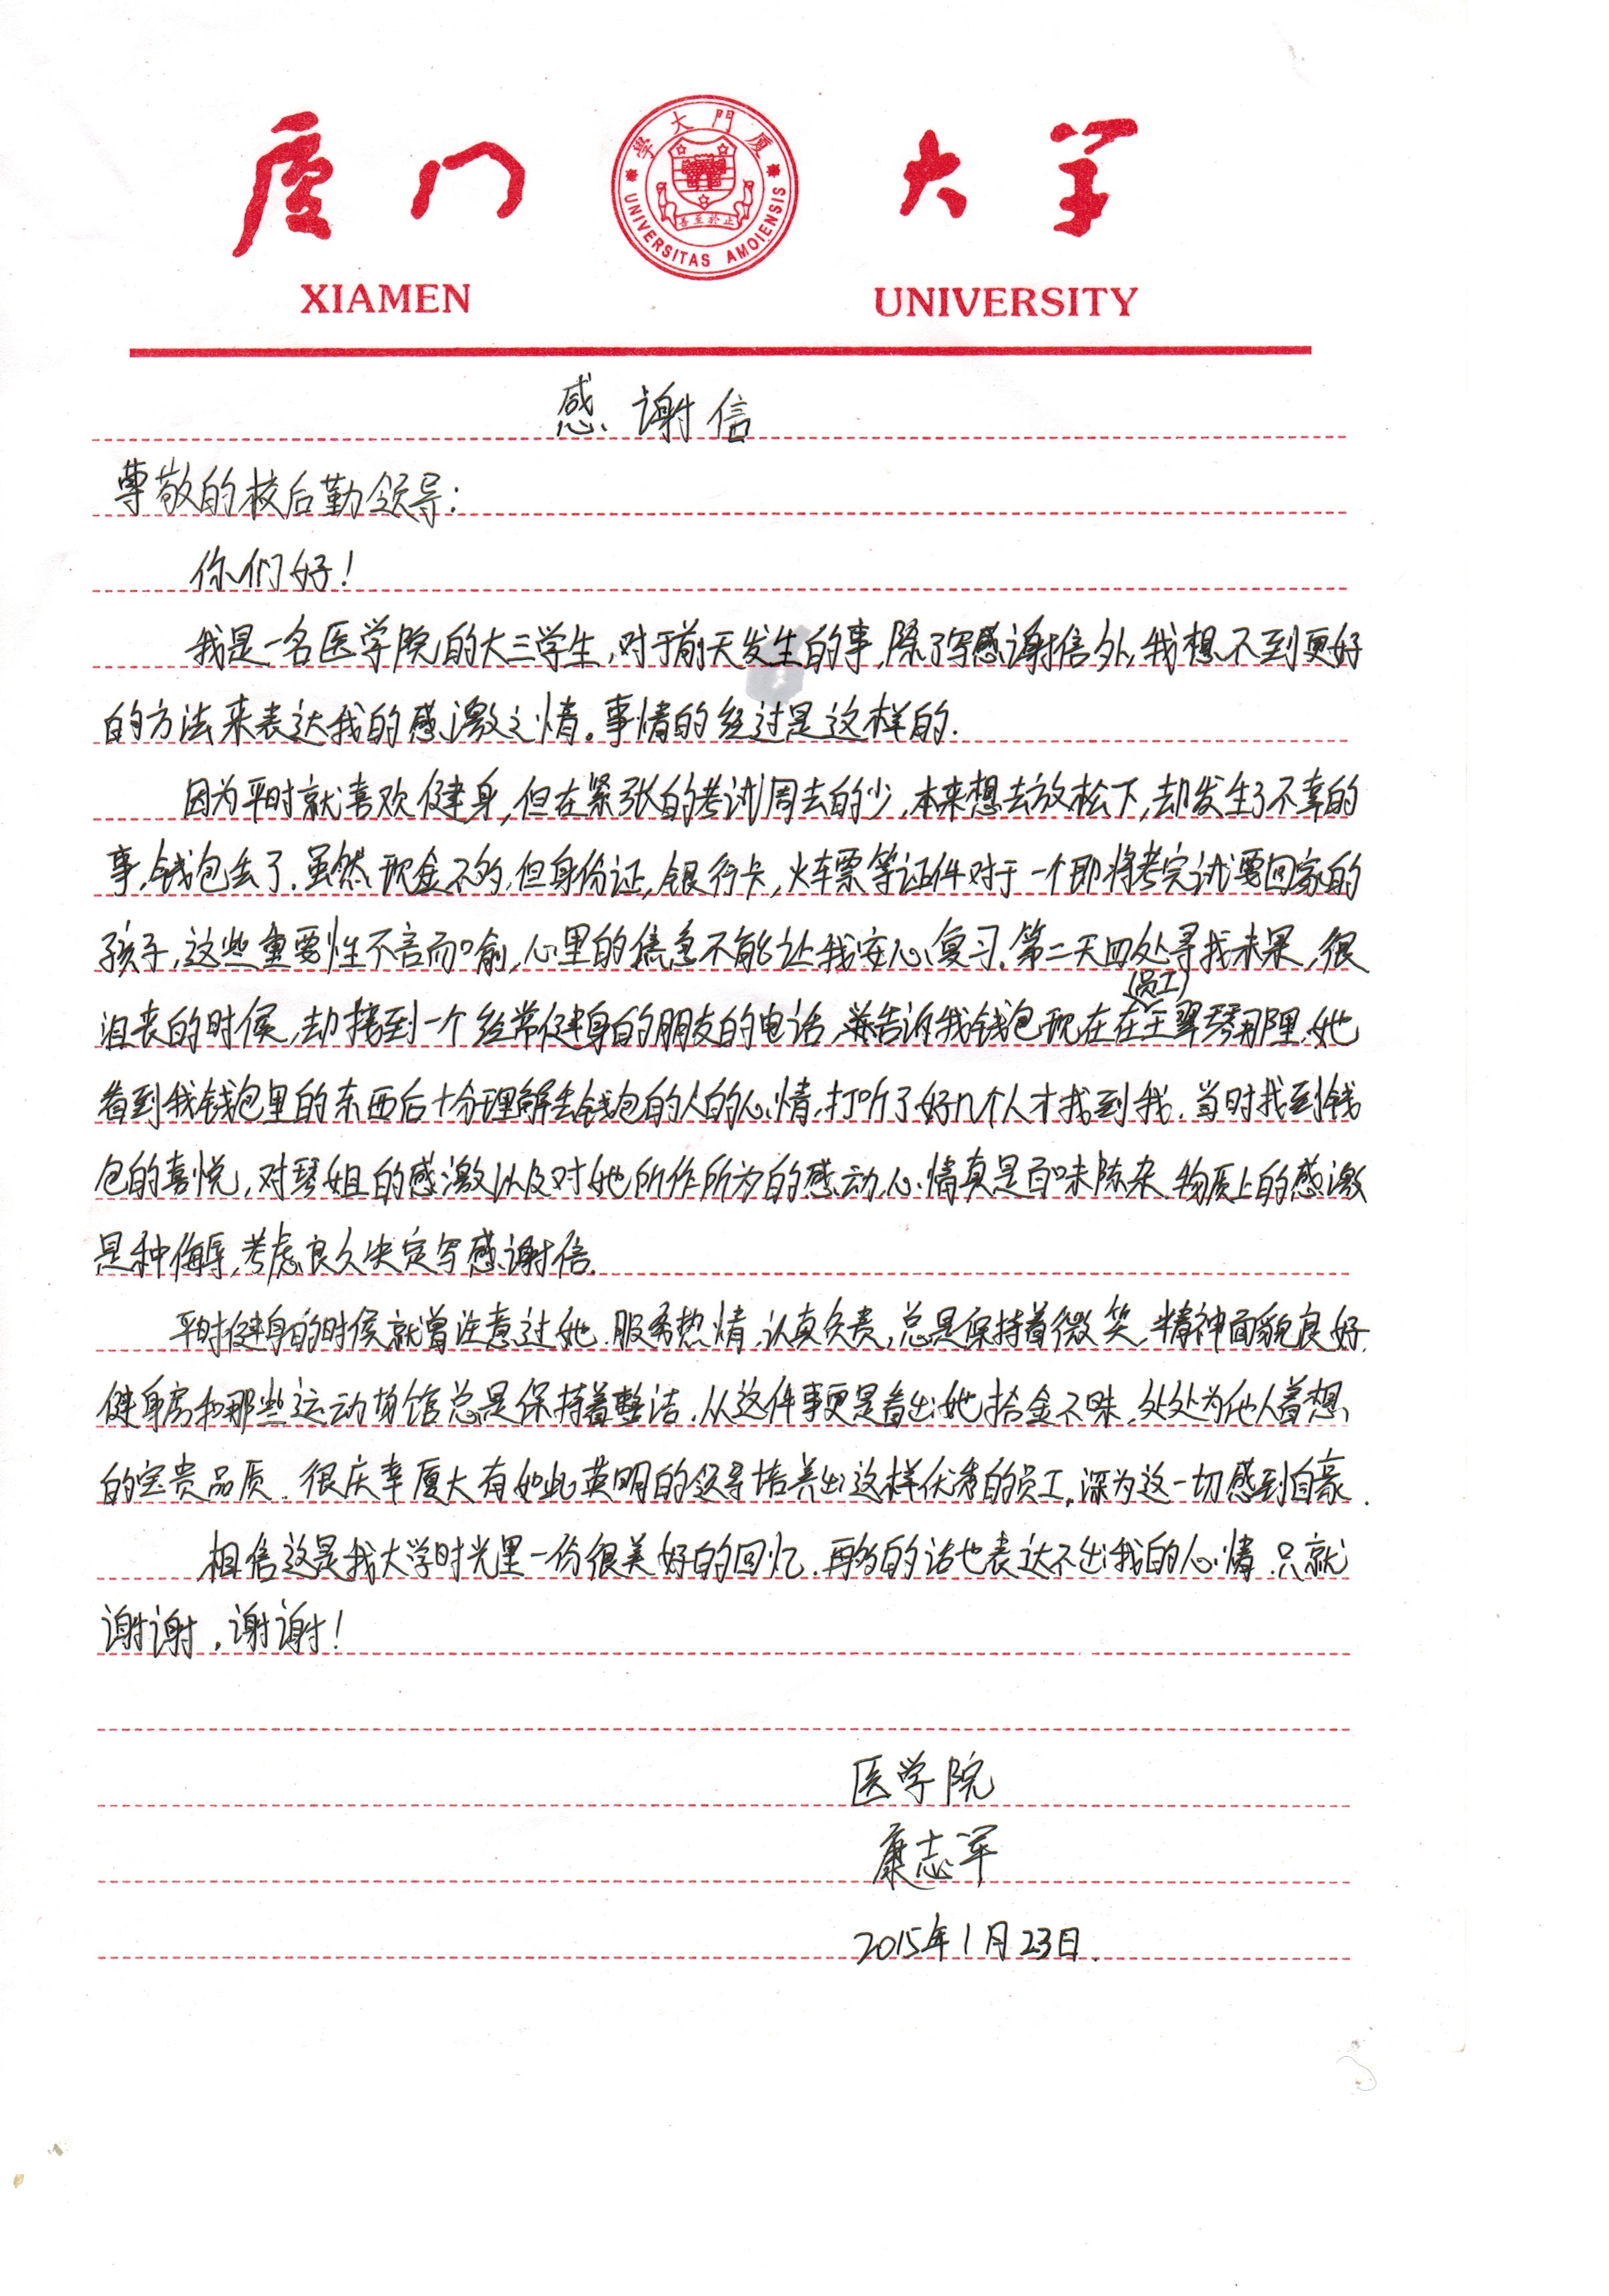 厦门大学
學大門厦
止於至善
UNIVERSITAS AMOIENSIS
XIAMEN UNIVERSITY
感谢信
尊敬的校后勤领导:
你们好!
我是一名医学院的大三学生,对于前天发生的事,除了写感谢信外,我想不到更好
的方法来表达我的感激之情。事情的经过是这样的.
因为平时就喜欢健身,但在紧张的考试周去的少,本来想去放松下,却发生了不幸的
事,钱包丢了.虽然现金不多,但身份证,银行卡,火车票等证件对于一个即将考完试要回家的
孩子,这些重要性不言而喻,心里的焦急不能让我安心复习.第二天四处寻找未果,很
沮丧的时候,却接到一个经常健身的朋友的电话,告诉我钱包现在在(员工)王翠琴那里,她
看到我钱包里的东西后十分理解丢钱包的人的心情,打听了好几个人才找到我.当时找到钱
包的喜悦,对琴姐的感激以及对她所作所为的感动,心情真是百味陈杂.物质上的感激
是种侮辱,考虑良久决定写感谢信.
平时健身的时候就曾注意过她.服务热情,认真负责,总是保持着微笑,精神面貌良好.
健身房和那些运动场馆总是保持着整洁.从这件事更是看出她拾金不昧,处处为他人着想
的宝贵品质.很庆幸厦大有如此英明的领导培养出这样优秀的员工,深为这一切感到自豪.
相信这是我大学时光里一份很美好的回忆.再多的话也表达不出我的心情.只就
谢谢,谢谢!
医学院
康志军
2015年1月23日.